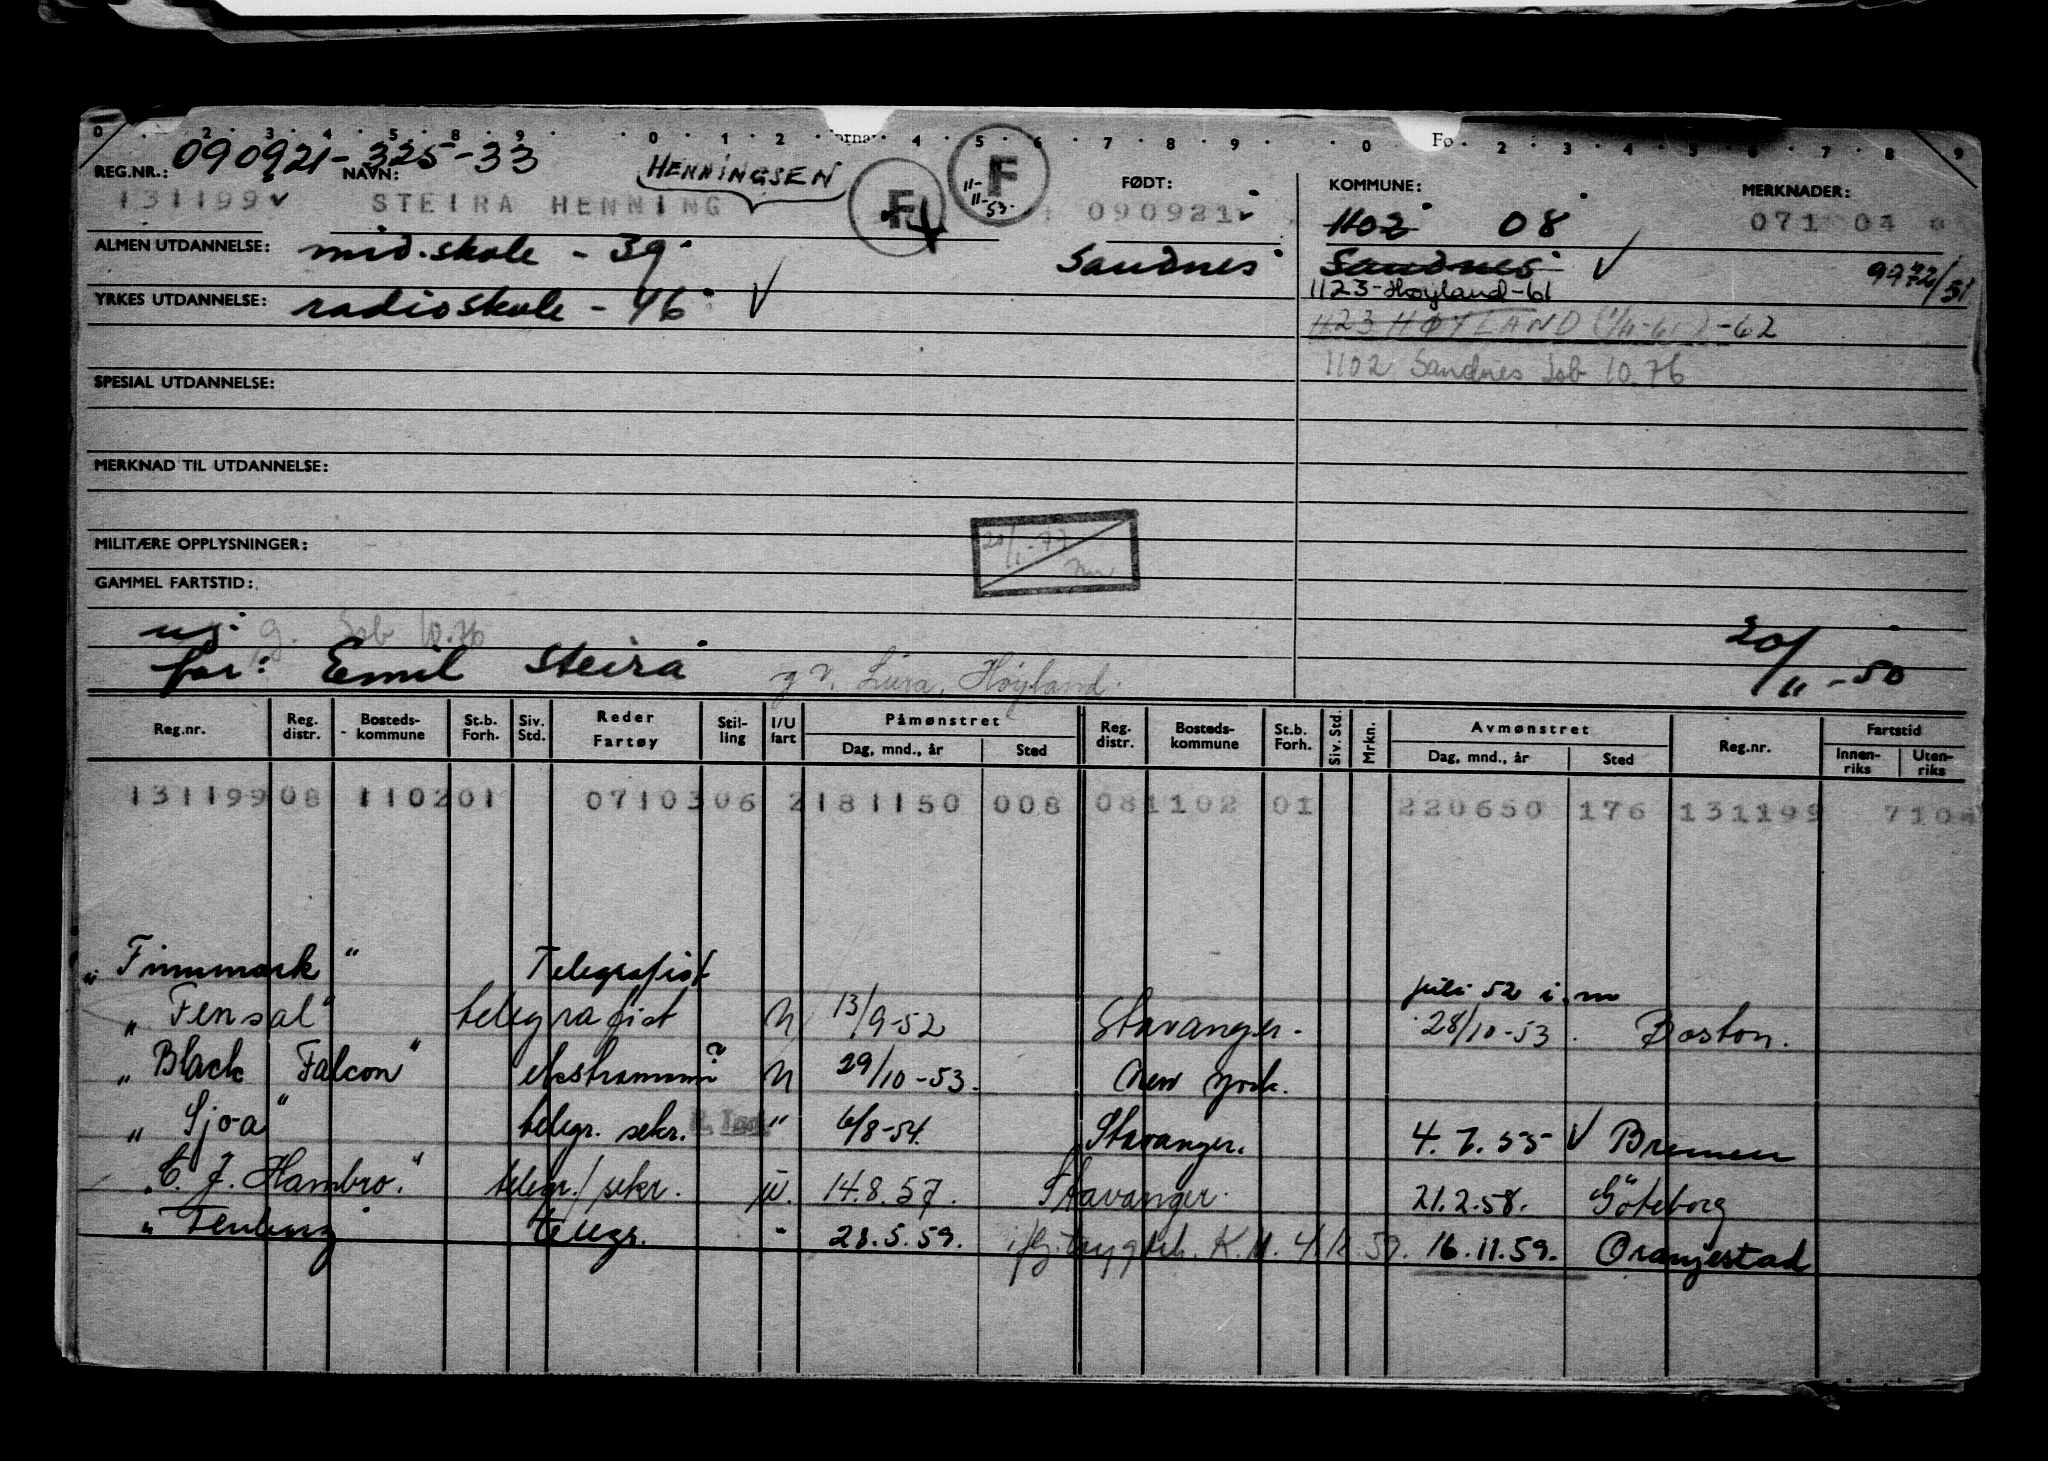 0 . . 2 . 3 . 4 . 5 . 8 . 9 . . 0 . 1 . 2 . orna 4 . 5 . 6 . 7 . 8 . 9 . . 0 . Fo 2 . 3 . 4 . 5 . 6 . 7 . 8 . 9
090921-325-33
REG.NR.: NAVN: HENNINGSEN F F 11-11-53. FØDT: KOMMUNE: MERKNADER:
131199 STEIRA HENNING 090921 1102 08 071 04
ALMEN UTDANNELSE: mid.skole - 39 Sandnes Sandnes 9972/51
YRKES UTDANNELSE: radioskole - 46 1123-Høyland-61
1123 HØYLAND (1/11-61) -62
1102 Sandnes Job 10.76
SPESIAL UTDANNELSE:
MERKNAD TIL UTDANNELSE:
MILITÆRE OPPLYSNINGER: 20/1-77
GAMMEL FARTSTID:
ug. g. Job 10.76 20/11-50
far: Emil Steira g v. Lura, Høyland.
Reg.nr. Reg. distr. Bosteds-kommune St.b. Forh. Siv. Std. Reder Fartøy Stil-ling I/U fart Påmønstret Dag, mnd., år Sted Reg. distr. Bosteds-kommune St.b. Forh. Siv. Std. Mrkn. Avmønstret Dag, mnd., år Sted Reg.nr. Fartstid Innen-riks Uten-riks
131199 08 1102 01 0710306 2 181150 008 08 1102 01 220650 176 131199 7104
"Finnmark" Telegrafist juli 52 i.m
"Fensal" telegrafist U 13/9-52 Stavanger. 28/10-53. Boston.
"Black Falcon" ekstramann? U 29/10-53. New York.
"Sjoa" telegr. sekr. " 6/8-54. Stavanger. 4.7.55 V Bremen
"C. J. Hambro." telegr./sekr. u. 14.8.57. Stavanger. 21.2.58. Göteborg
" telegr. - 28.5.59. 16.11.59. Oranjestad